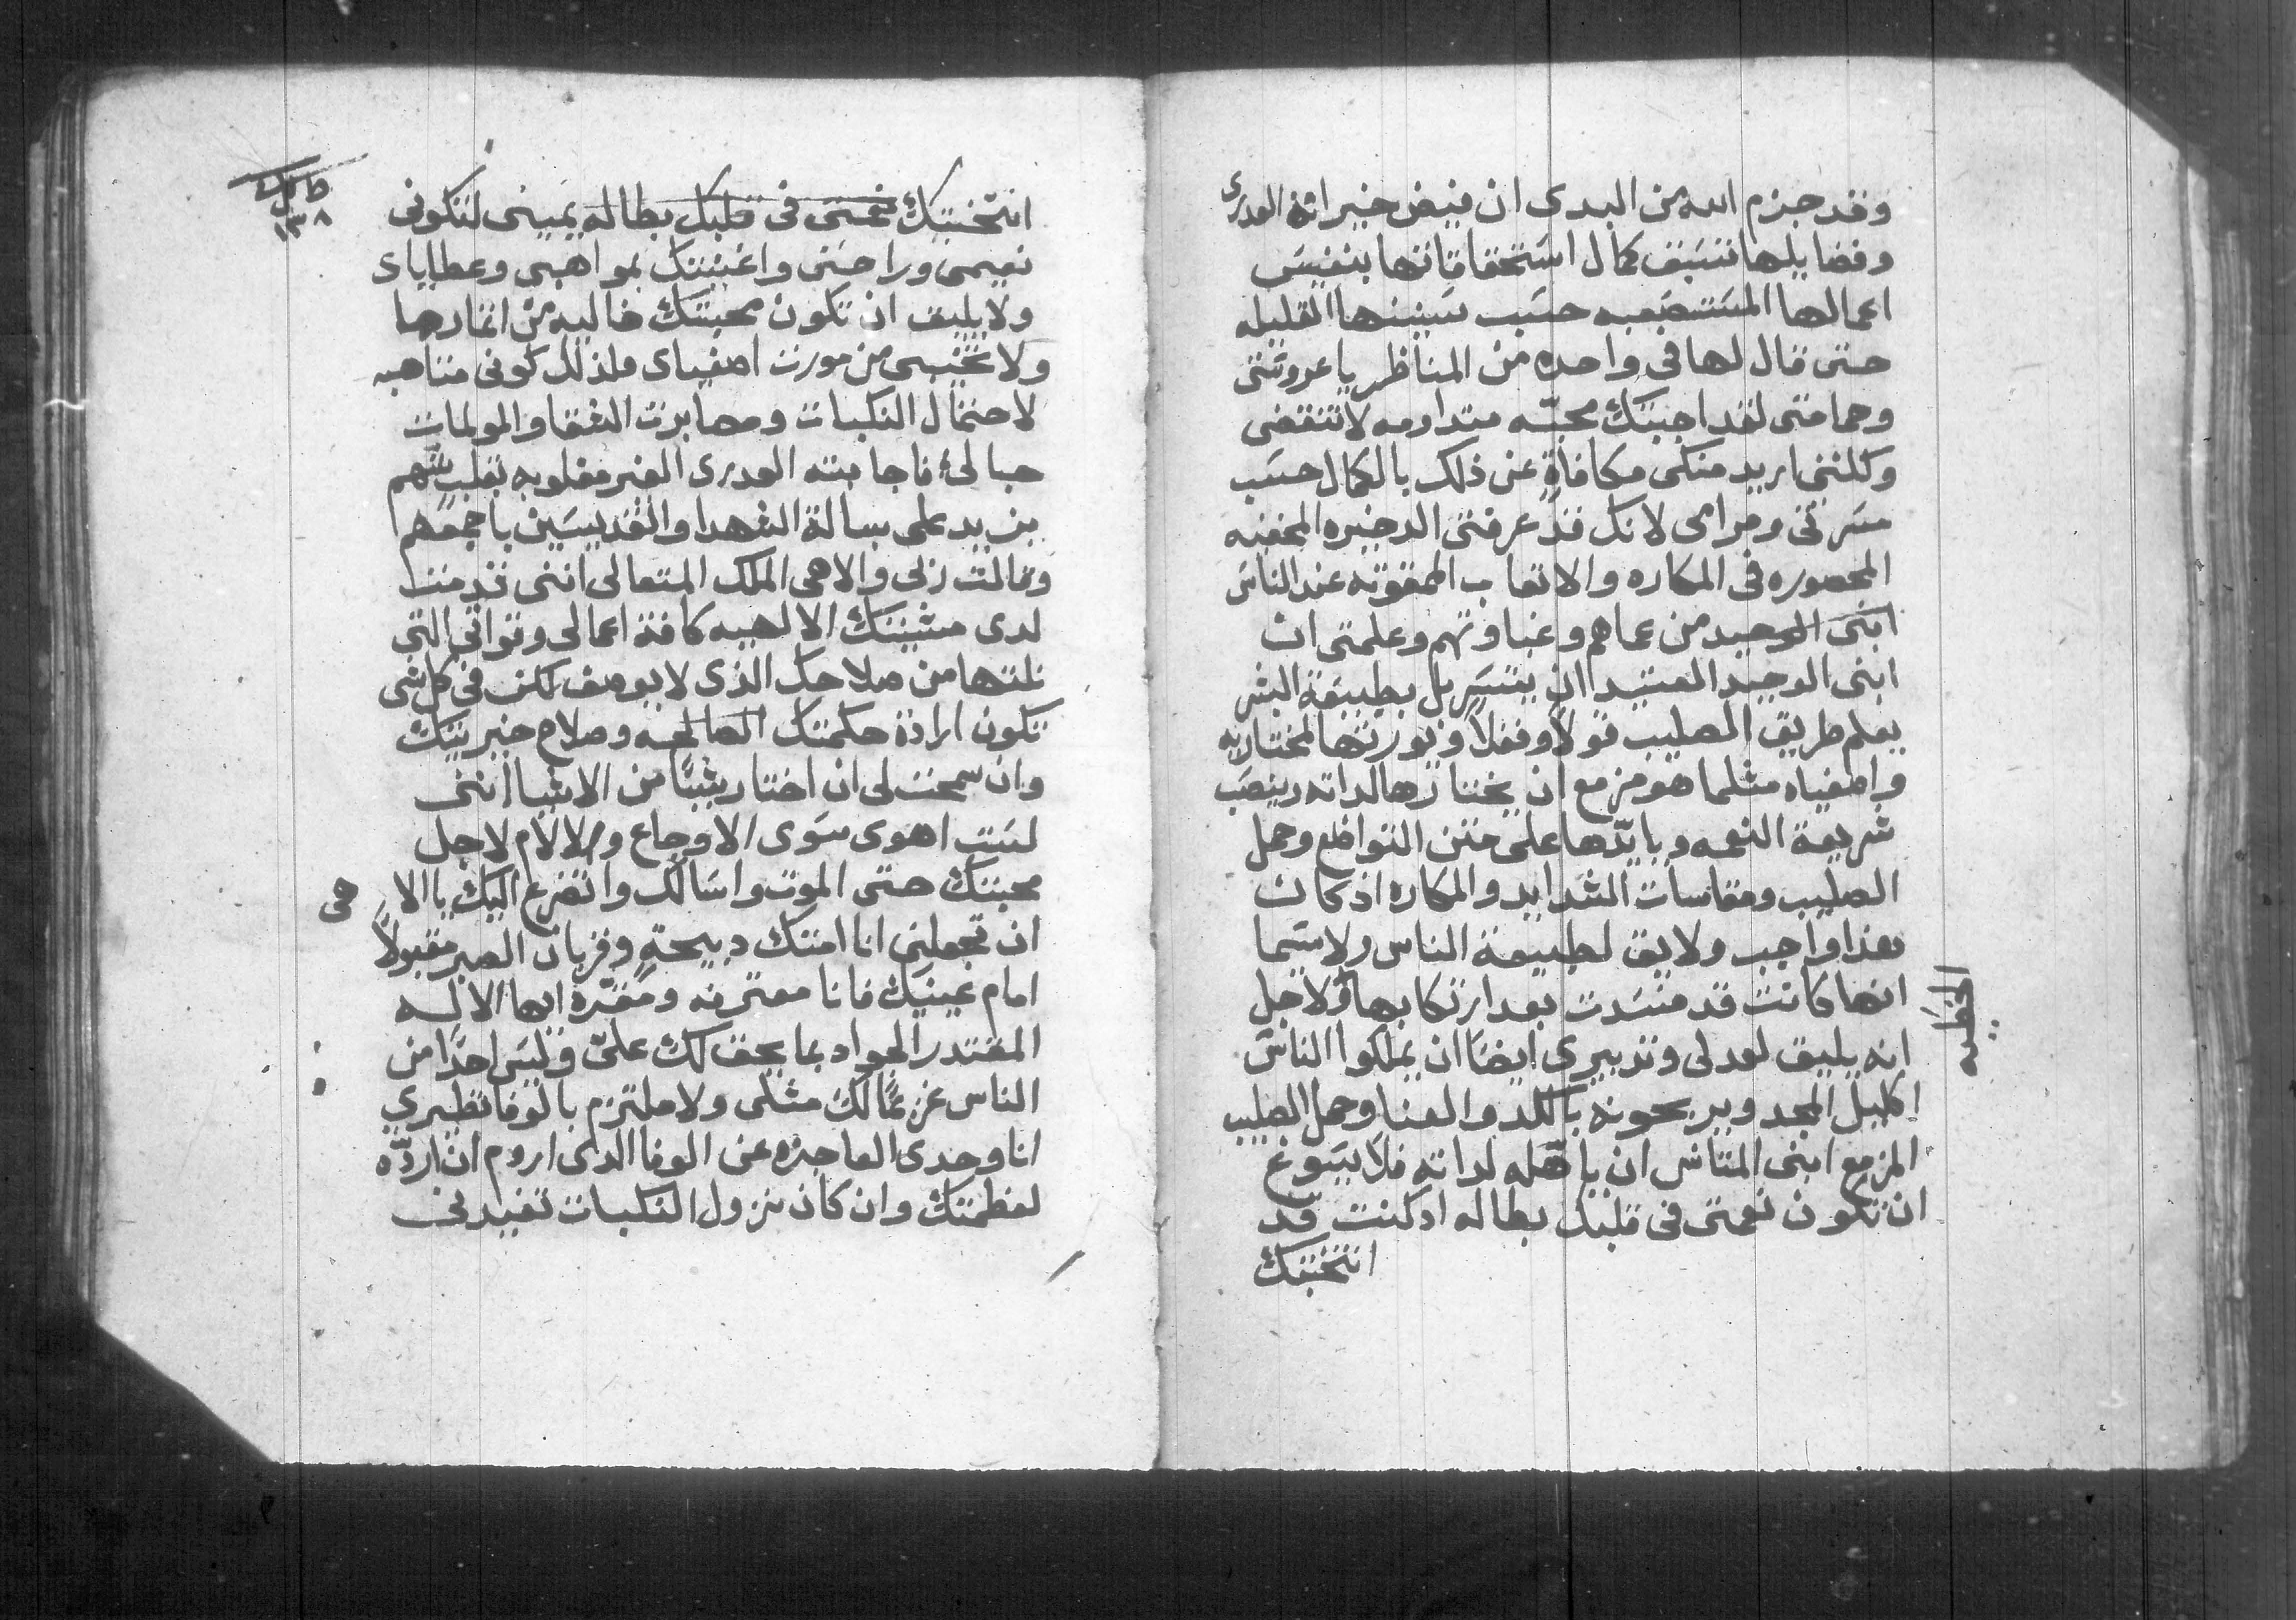 وقد جزم الله من البدى ان فيض خيراته العدرى
وفضايلها تسبق كمال استحقاقاتها بنفيس
اعمالها المستصعبه حسب سنينها القليله
حتى قال لها فى واحده من المناظر يا عروستى
وحمامتى لقد احببتك محبّه متداومه لا تنقضى
وكلننى اريد منكى مكافاةٍ عن ذلك بالكمال حسب
مسرتى ومرامى لانك قد عرفتى الدخيره المخفيه
المحصوره فى المكاره والاتعاب الممقوته عند الناس
ابنى الوحيد من عماهم وغباوتهم وعلمتى ان
ابنى الوحيد العتيد ان يتسربل بطبيعة البشر
يعلم طريق الصليب قولاً وفعلاً ويورتها لمختاريه
واصفياه مثلما هو مزمع ان يختارها لداته وينصب
شريعة النعمه ويايدّها على متن التواضع وحمل
الصليب ومقاسات الشدايد والمكاره اذ كان
هذا واجب ولايق لطبيعة الناس ولاسيما
انها كانت قد فسدت بعد ارتكابها ولاجل
الخطيه
انه يليق لعدلى وتدبيرى ايضًا ان يملكوا الناس
اكليل المجد ويربحونه بالكد والعنا وحمل الصليب
المزمع ابنى المتانس ان ياهّله لداته فلا يسوغ
ان تكون نعمتى فى قلبك بطاله اد كنت قد
انتخبتك
١٣٨
انتخبتك نعمتى فى قلبك بطاله يمينى لتكونى
نعيمى وراحتى واغنيتك بمواهبى وعطاياى
ولا يليق ان تكون محبتك خاليه من اتمارها
ولا تخيبى من مورت اصفياى فلذلك كونى متاهبه
لاحتمال النكبات ومصابرت الشقا والمولمات
حبا لى فاجابته العدرى الغير مغلوبه بقلبٍ شهم
يزيد على بسالة الشهدا والقديسين باجمعهم
وقالت ربى والاهى الملك المتعالى اننى قدمت
لدى مشيتك الالهيه كافة اعمالى وقواتى التى
نلتها من صلاحك الذى لا يوصف لكن فى كل شى
تكون ارادة حكمتك الصالحه وصلاح خيريتك
وان سمحت لى ان اختار شيئًا من الاشيا اننى
لست اهوى سوى الاوجاع والالام لاجل
محبتك حتى الموت واسالك واتضرع اليك يا الاهى
ان تجعلنى انا امتك دبيحةٍ وقربان الصبر مقبولاً
امام عينيك فانا معترفه ومقرّه ايها الاله
المقتدر الجواد بما يحق لك علىّ وليس احدًا من
الناس غزير لك مثلى ولا ملتزم بالوفا نظيرى
انا وحدى العاجزه عن الوفا الدى اروم ان اردّه
لعظمتك وان كان نزول النكبات تفيدنى